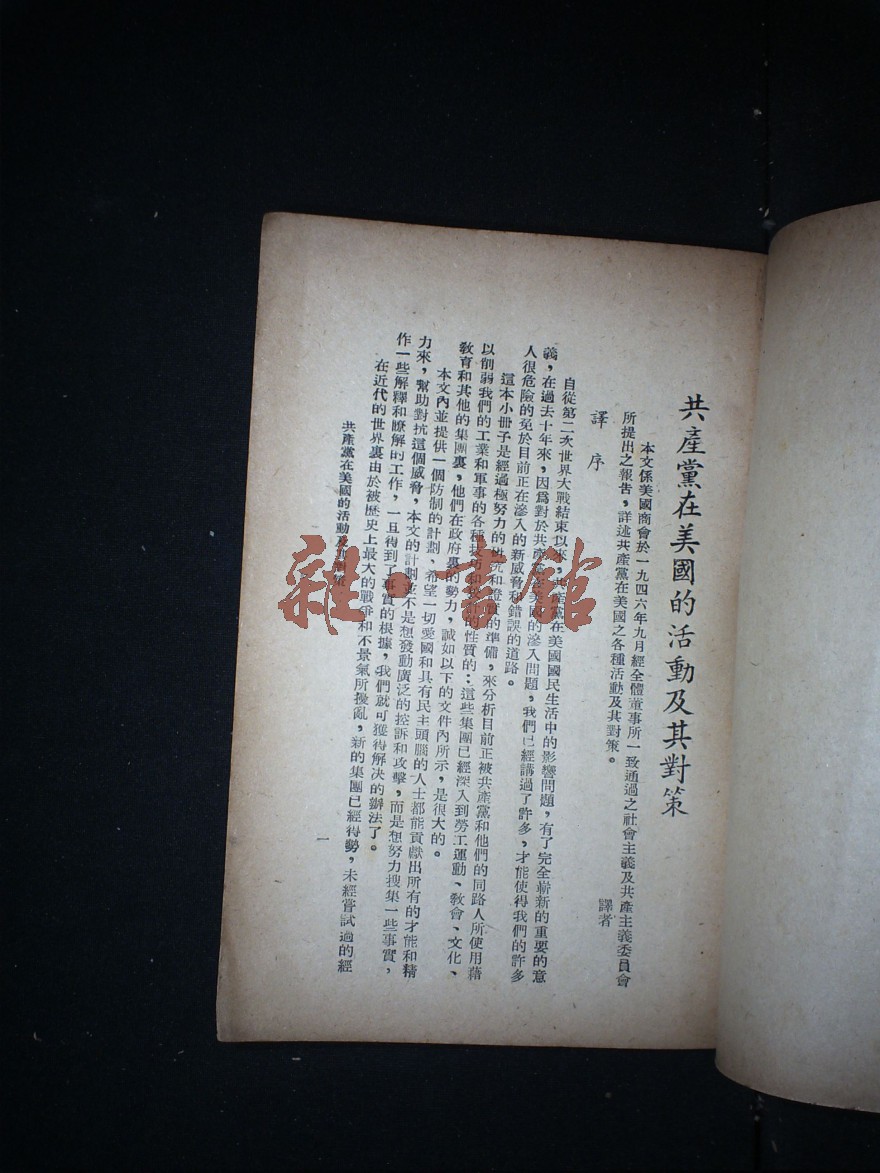 共產黨在美國的活動及其對策
本文係美國商會於一九四六年九月經全體董事所一致通過之社會主義及共產主義委員會
所提出之報告，詳述共產黨在美國之各種活動及其對策。
譯者
譯序
自從第二次世界大戰結束以來，共產黨在美國國民生活中的影響問題，有了完全嶄新的重要的意
義，在過去十年來，因爲對於共產黨在美國的滲入問題，我們已經講過了許多，才能使得我們的許多
人很危險的免於目前正在滲入的新威脅和錯誤的道路。
這本小冊子是經過極努力的 和證實的準備，來分析目前正被共產黨和他們的同路人所使用藉
以削弱我們的工業和軍事的各種技巧和 的性質的：這些集團已經深入到勞工運動、教會、文化、
教育和其他的集團裏，他們在政府裏的勢力，誠如以下的文件內所示，是很大的。
本文內並提供一個防制的計劃、希望一切愛國和具有民主頭腦的人士都能貢獻出所有的才能和精
力來，幫助對抗這個威脅，本文的計劃並不是想發動廣泛的控訴和攻擊，而是想努力搜集一些事實，
作一些解釋和瞭解的工作，一旦得到了事實的根據，我們就可獲得解決的辦法了。
在近代的世界裏由於被歷史上最大的戰爭和不景氣所擾亂，新的集團已經得勢，未經嘗試過的經
共產黨在美國的活動及其對策
一
雜·書館